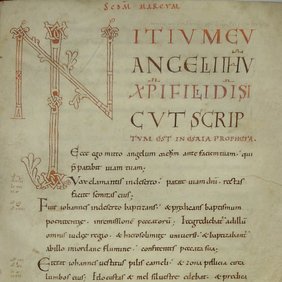 SCDM MARCUM
INITIUM EU
ANGELII IHU
XPI FILII DI SI
CUT SCRIP
TUM EST IN ESAIA PROPHETA.
Ecce ego mitto angelum meum ante faciem tuam · qui
p̄parabit uiam tuam;
Vox clamantis indeserto · parate uiam dni · rectas
facite semitas eius;
Fuit iohannes indeserto baptizans · & praedicans baptismum
poenitentiae · inremissionem peccatorum; Et egrediebatur ad illum
omnis iudeae regio · & hierosolimitae uniuersi · & baptizabantur
ab illo iniordane flumine · confitentes peccata sua;
Et erat iohannes uestitus pilis cameli · & zona pellicia circa
lumbos eius; Et locustas & mel siluestre edebat · & praedica